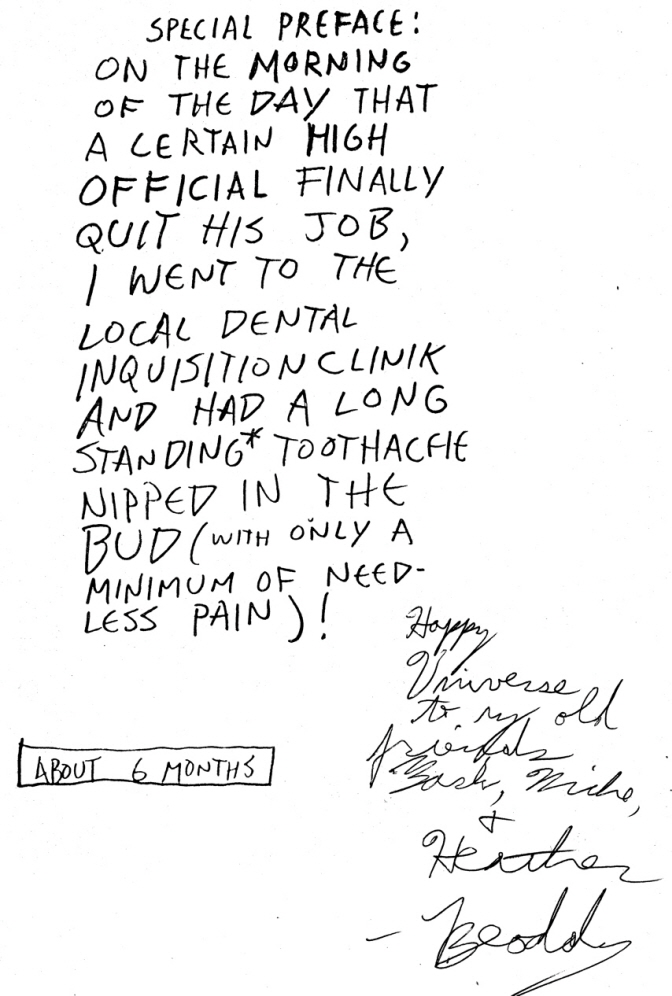 SPECIAL PREFACE:
ON THE MORNING
OF THE DAY THAT
A CERTAIN HIGH
OFFICIAL FINALLY
QUIT HIS JOB,
I WENT TO THE
LOCAL DENTAL
INQUISITION CLINIK
AND HAD A LONG
STANDING* TOOTHACHE
NIPPED IN THE
BUD (WITH ONLY A
MINIMUM OF NEED-
LESS PAIN)!
Happy
Universe
to my old
friends
&
Heather
ABOUT 6 MONTHS